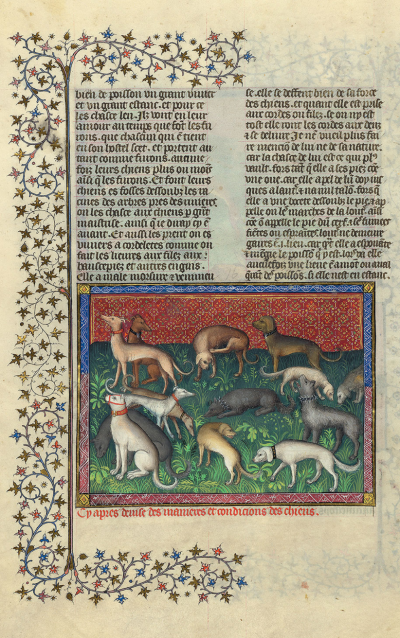 bien de poisson un grant vivier
et un grant estanc. et pour ce
les chasse len. Ilz vont en leur
amour au temps que font les fu
rons. que chascun qui en tient
en son hostel scet. et portent au
tant comme furons. aucune
fois leurs chiens plus ou mois
ainsi que les furons. Et font leurs
chiens es fosses dessoubz les ra
cines des arbres pres des rivieres
on les chasse aux chiens par grant
maistrise. ainsi que diray cy a
vant. Et aussi les prent on es
riviers a cordeletes comme on
fait les lievres aux filez aux
et autres engins.
Elle a male morsure et
se. elle se deffent bien de sa force
des chiens. et quant elle est prise
aux cordes ou filez. se on ny est
tost elle ront les cordes aux dens
et se delivre. Je ne vueil plus fai
re mencion de lui ne de sa nature.
car la chasse de lui est ce qui plus
vault. fors tant quelle a les piez com
me une oue. car elle a
ques a lautre. fors q
elle a une dessoubz le pie. et ap
pelle on le marches de la loutre. ainsi
que on appelle le pie du cerf. se
ou elle ne demeure
gaires en i. lieu. car quant elle a
le poisson
une lieue en amont ou aval
querir des poissons. si elle nest en estanc.
Cy apres devise des manieres et condicions des chiens.